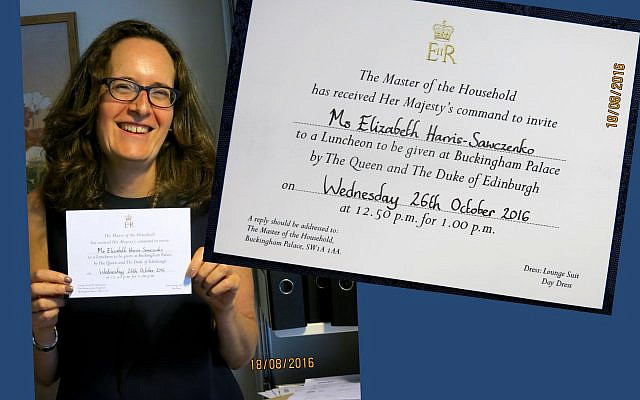 EIIR
The Master of the Household
has received Her Majesty's command to invite
Ms Elizabeth Harris-Sawczenko
to a Luncheon to be given at Buckingham Palace
by The Queen and The Duke of Edinburgh
on Wednesday 26th October 2016
at 12.50 p.m. for 1.00 p.m.
A reply should be addressed to:
The Master of the Household,
Buckingham Palace, SW1A 1AA.
Dress: Lounge Suit
Day Dress
18/08/2016
EIIR
The Master of the Household
has received Her Majesty's command to invite
Ms Elizabeth Harris-Sawczenko
to a Luncheon to be given at Buckingham Palace
by The Queen and The Duke of Edinburgh
on Wednesday 26th October 2016
at 12.50 p.m. for 1.00 p.m.
18/08/2016